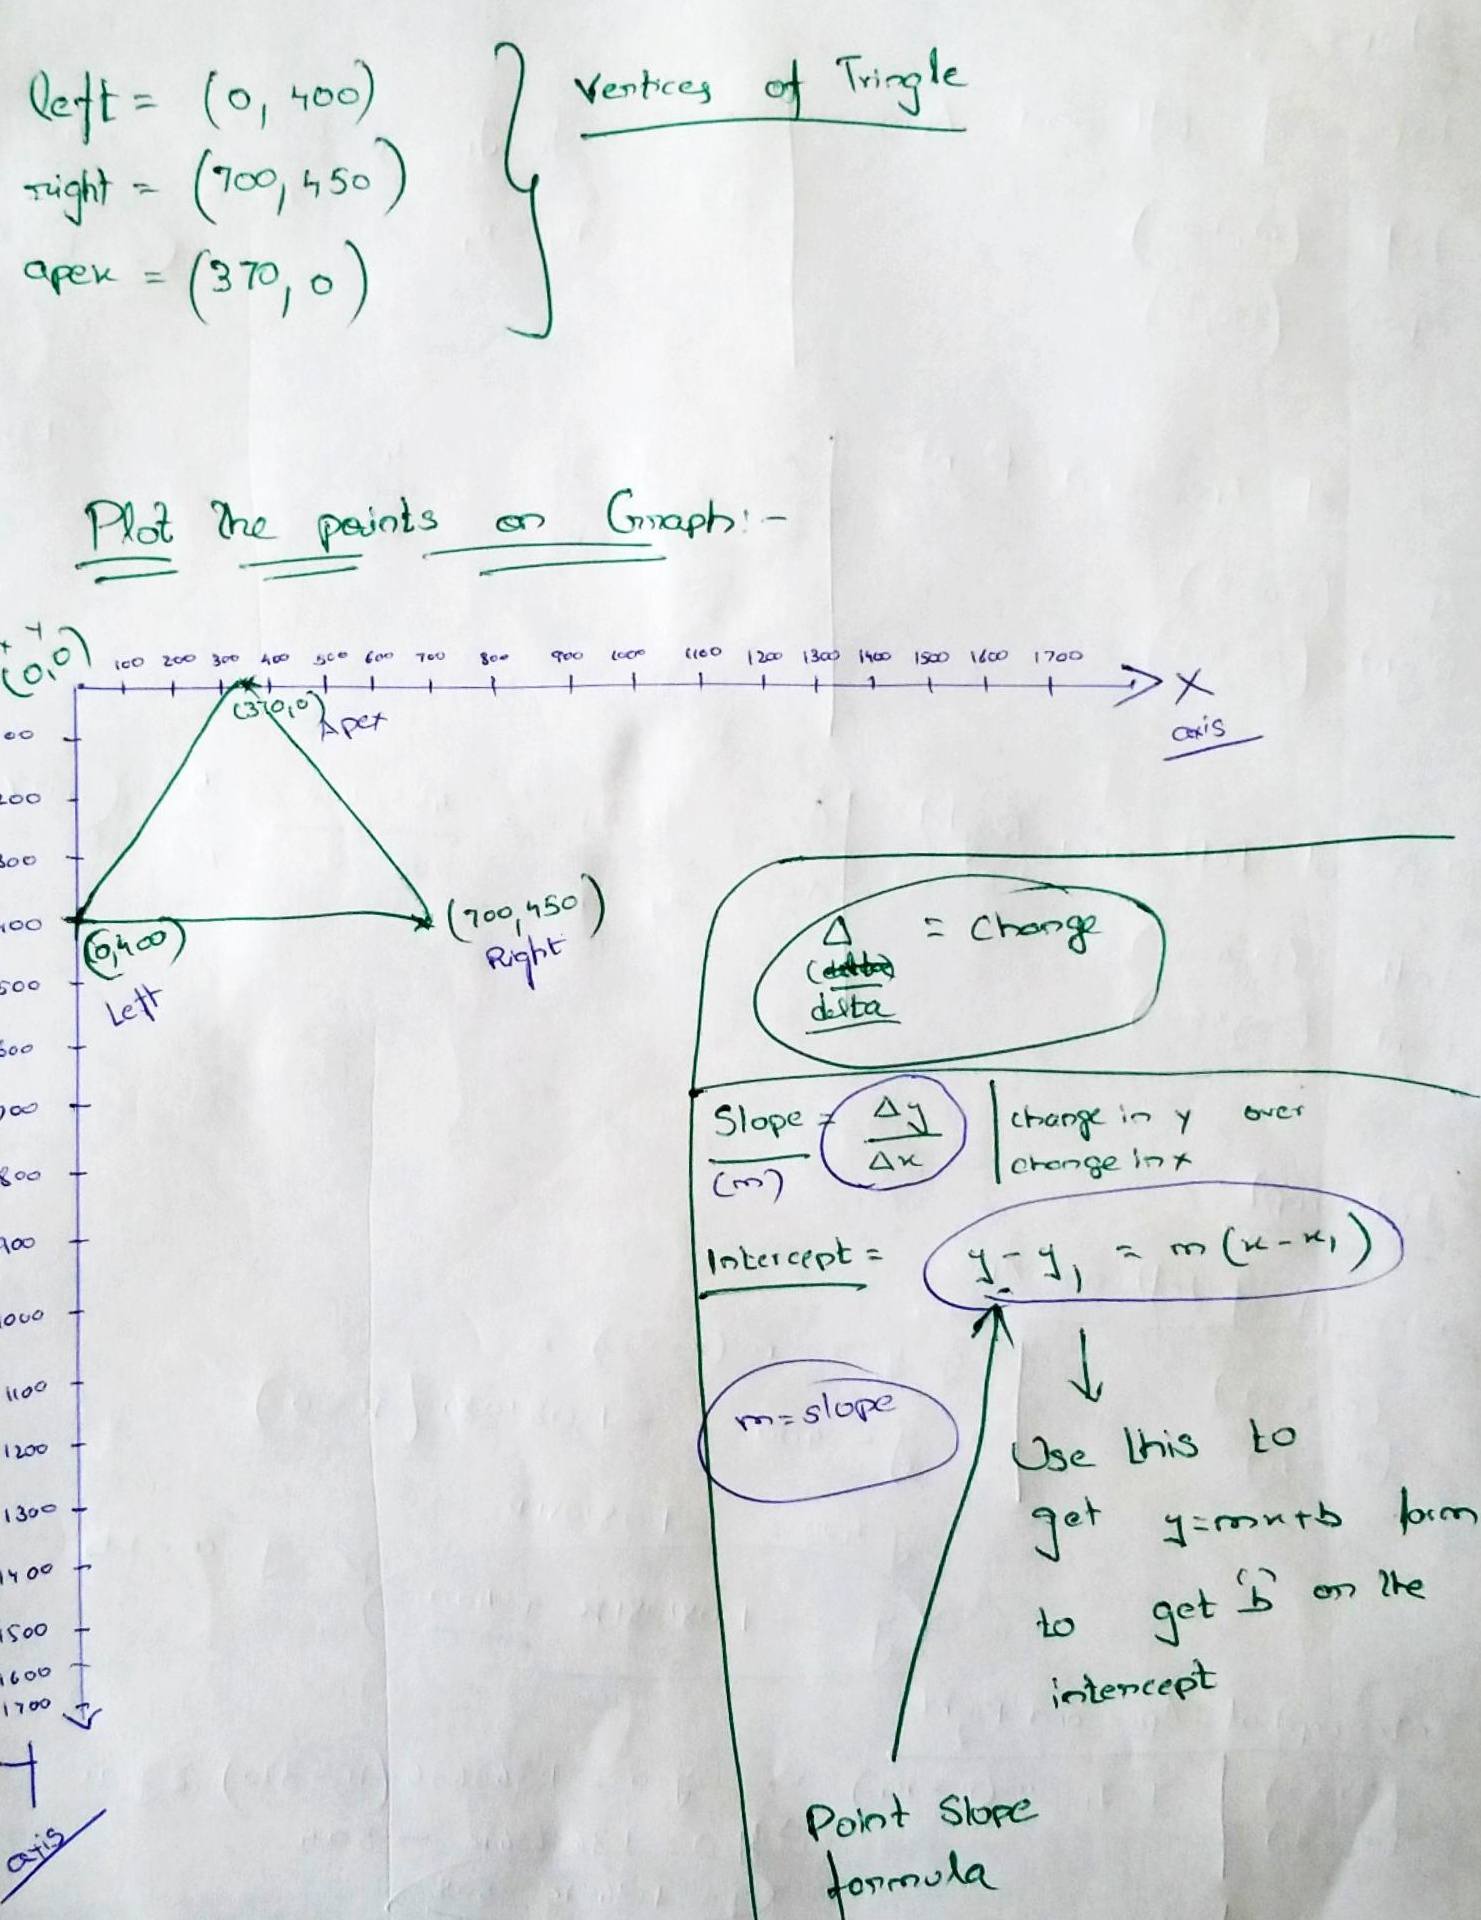 left = (0, 400)
right = (700, 450)
apex = (370, 0)
Vertices of Tringle
Plot the points on Graph:-
x y
(0,0)
100 200 300 400 500 600 700 800 900 1000 1100 1200 1300 1400 1500 1600 1700
X
axis
(370,0)
Apex
00
200
300
400
(0,400)
Left
(700,450)
Right
500
600
700
800
900
1000
1100
1200
1300
1400
1500
1600
1700
Y
axis
Δ = change
delta
Slope = Δy
Δx
(m)
change in y over
change in x
Intercept = y - y₁ = m(x-x₁)
m = slope
Use this to
get y=mx+b form
to get "b" on the
intercept
Point Slope
formula